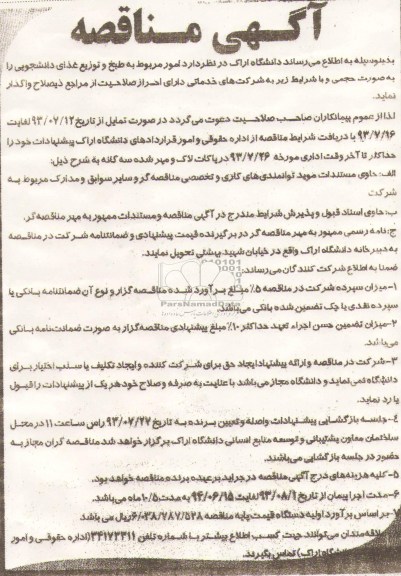 آگهی مناقصه
بدینوسیله به اطلاع می‌رساند دانشگاه اراک در نظر دارد امور مربوط به طبخ و توزیع غذای دانشجویی را
به صورت حجمی و با شرایط زیر به شرکت‌های خدماتی دارای احراز صلاحیت از مراجع ذیصلاح واگذار
نماید.
لذا از عموم پیمانکاران صاحب صلاحیت دعوت می گردد در صورت تمایل از تاریخ ۹۳/۰۷/۱۲ لغایت
۹۳/۷/۱۶ با دریافت شرایط مناقصه از اداره حقوقی و امور قراردادهای دانشگاه اراک پیشنهادات خود را
حداکثر تا آخر وقت اداری مورخه ۹۳/۷/۲۶ در پاکات لاک و مهر شده سه گانه به شرح ذیل:
الف: حاوی مستندات موید توانمندی‌های کاری و تخصصی مناقصه گر و سایر سوابق و مدارک مربوط به
شرکت
ب: حاوی اسناد قبول و پذیرش شرایط مندرج در آگهی مناقصه و مستندات ممهور به مهر مناقصه‌گر.
ج: نامه رسمی ممهور به مهر مناقصه گر در برگیرنده قیمت پیشنهادی و ضمانتنامه شرکت در مناقصه
به دبیرخانه دانشگاه اراک واقع در خیابان شهید بهشتی تحویل نمایند.
ضمنا به اطلاع شرکت کنندگان می‌رساند:
۱- میزان سپرده شرکت در مناقصه ۵٪ مبلغ برآورد شده مناقصه گزار و نوع آن ضمانتنامه بانکی یا
سپرده نقدی یا چک تضمین شده بانکی می‌باشد.
ParsNamadData
۲- میزان تضمین حسن اجراء تعهد حداکثر ۱۰٪ مبلغ پیشنهادی مناقصه‌گزار به صورت ضمانت‌نامه بانکی
می‌باشد.
۳- شرکت در مناقصه و ارائه پیشنهاد ایجاد حق برای شرکت کننده و ایجاد تکلیف یا سلب اختیار برای
دانشگاه نمی‌نماید و دانشگاه مجاز می‌باشد با عنایت به صرفه و صلاح خود هر یک از پیشنهادات را قبول
یا رد نماید.
۴- جلسه بازگشایی پیشنهادات واصله و تعیین برنده به تاریخ ۹۳/۰۷/۲۷ راس ساعت ۱۱ در محل
ساختمان معاون پشتیبانی و توسعه منابع انسانی دانشگاه اراک برگزار خواهد شد مناقصه گران مجاز به
حضور در جلسه بازگشایی می‌باشند.
۵- کلیه هزینه‌های درج آگهی مناقصه در جراید بر عهده برنده مناقصه خواهد بود.
۶- مدت اجرا پیمان از تاریخ ۹۳/۰۸/۱ لغایت ۹۴/۰۶/۱۵ به مدت ۱۰/۵ ماه می‌باشد.
۷- بر اساس برآورد اولیه دستگاه قیمت پایه مناقصه ریال می باشد
علاقه‌مندان می‌توانند جهت کسب اطلاع بیشتر با شماره تلفن ۳۴۱۷۳۳۱۱ (اداره حقوقی و امور
دانشگاه اراک) تماس بگیرند.